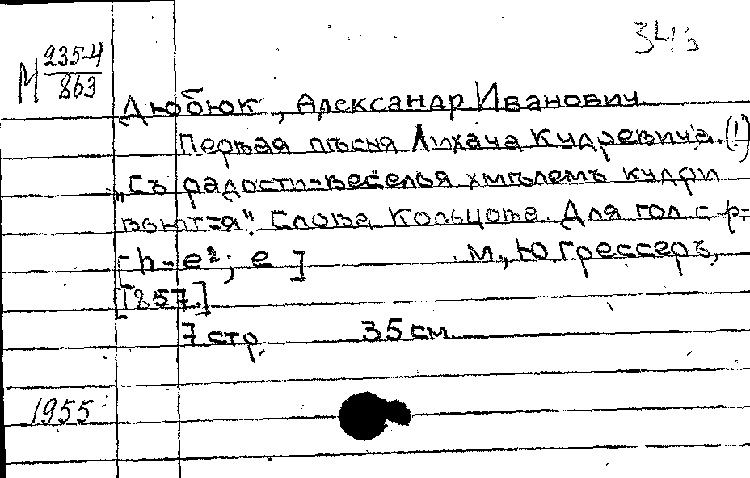 34
М 235-4
863
Дюбюк, Александр Иванович
Первая пѣсня Лихача Кудревича. (!)
„Съ радости-веселья хмѣлемъ кудри
вьются". Слова Кольцова. Для гол с ф-
-п - e²; e ] М, Ю Грессеръ,
[1857]
7 стр. 35 см
1955